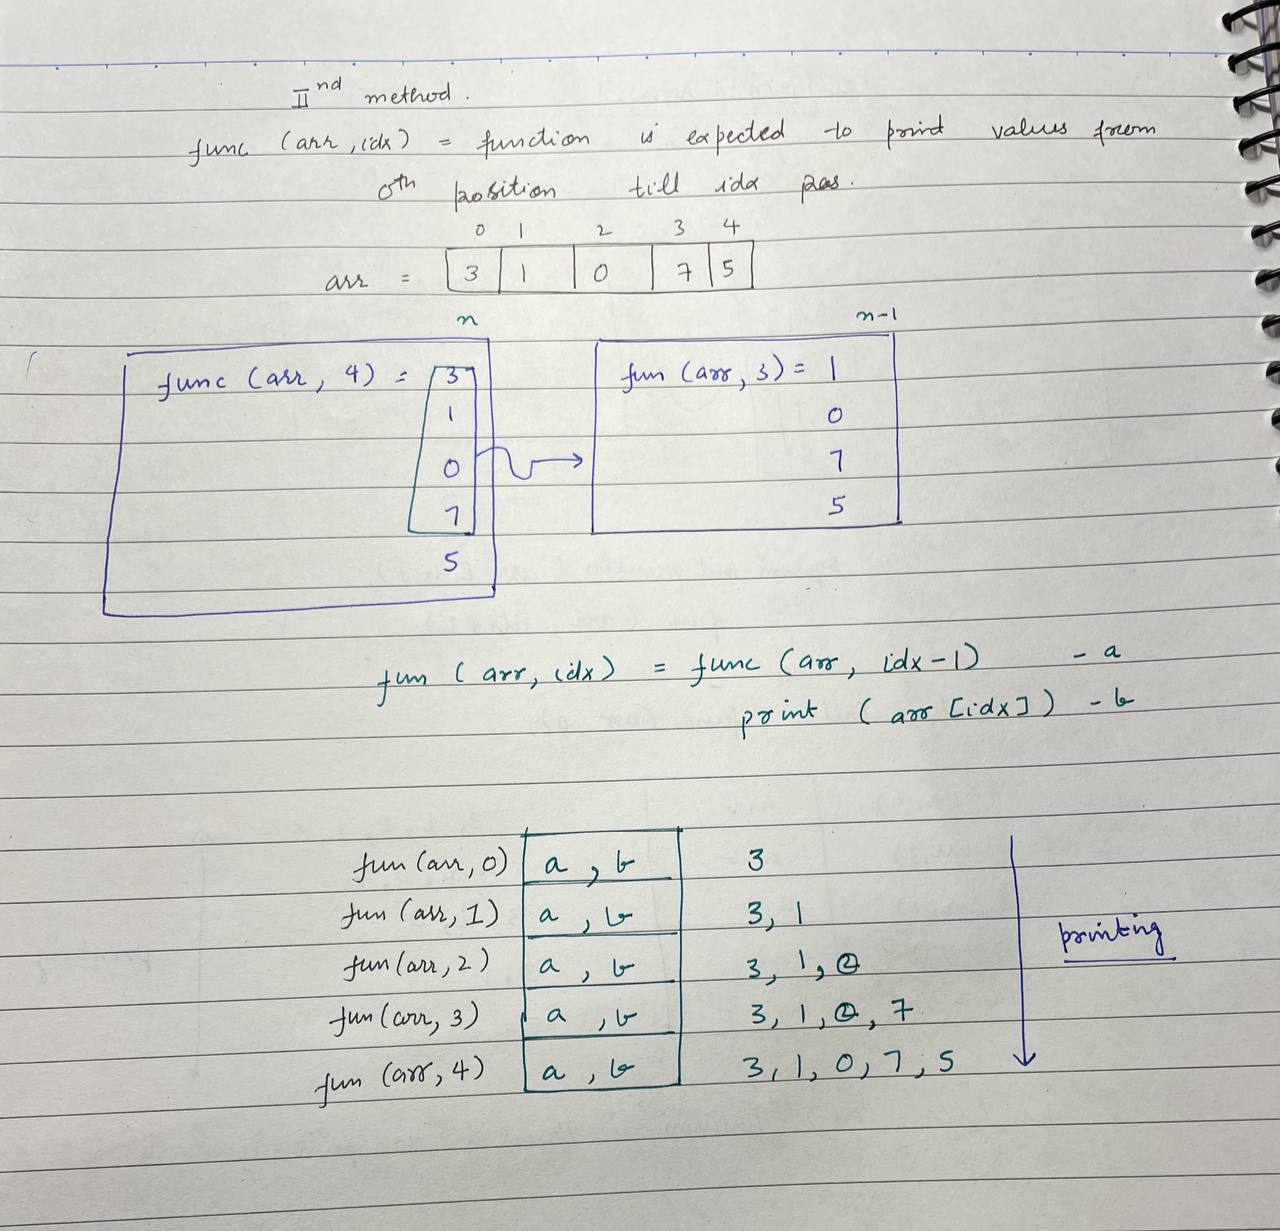 IInd method.
func (arr, idx) = function is expected to print values from
0th position till idx pos.
0 1 2 3 4
arr = 3 1 0 7 5
n n-1
func (arr, 4) = 3 fun (arr, 3) = 1
1 0
0 7
7 5
5
fun (arr, idx) = func (arr, idx-1) - a
print (arr [idx]) - b
fun (arr, 0) a, b 3
fun (arr, 1) a, b 3, 1
printing
fun (arr, 2) a, b 3, 1,
fun (arr, 3) a, b 3, 1, , 7
fun (arr, 4) a, b 3, 1, 0, 7, 5